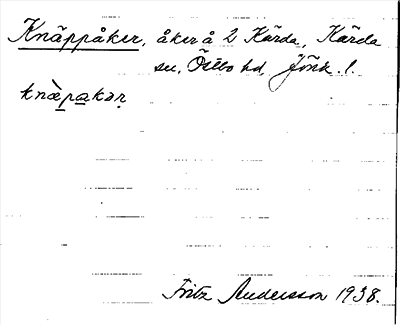 Knäppåker, åker å 2 Kärda, Kärda
sn, Östbo hd, Jönk. l.
knæ̀pakər
Fritz Andersson 1938.